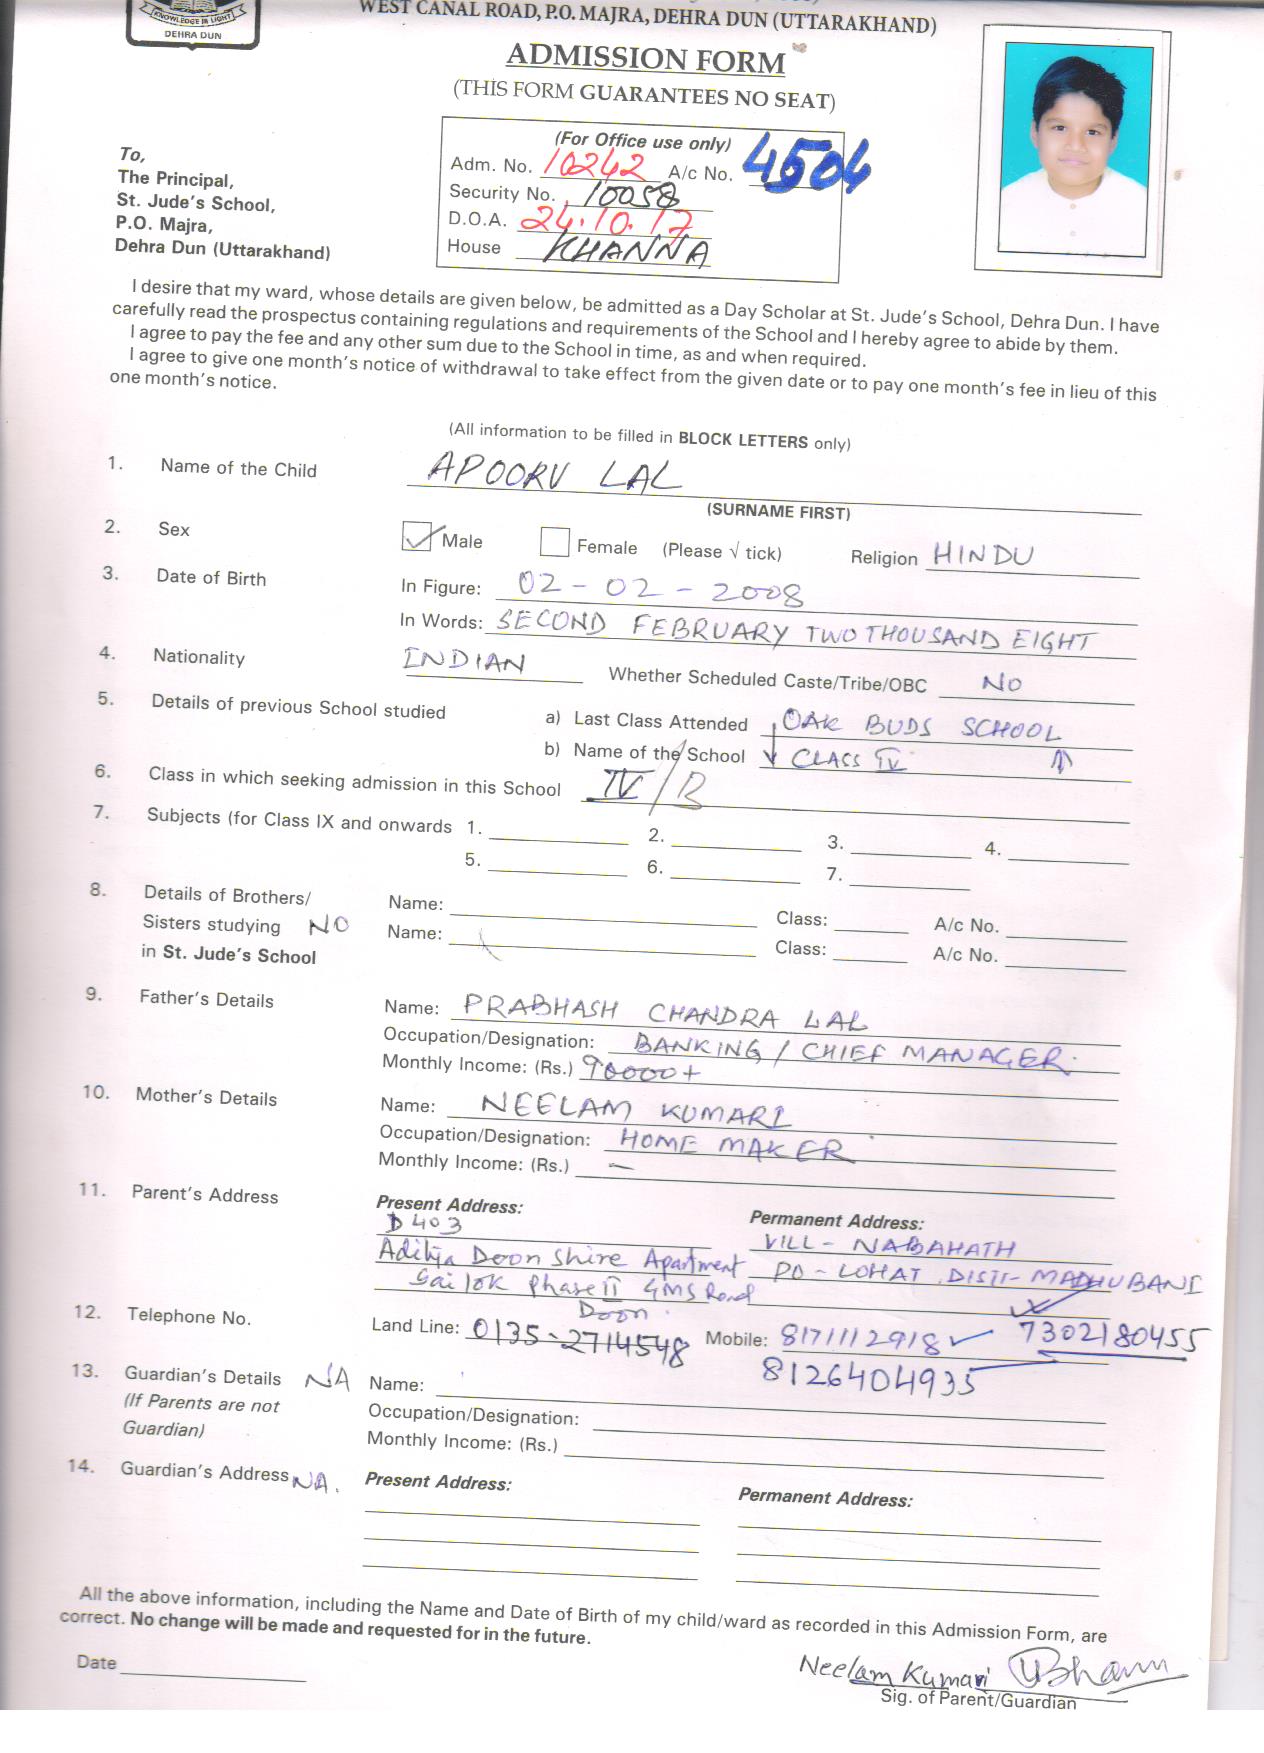 KNOWLEDGE IS LIGHT
DEHRA DUN
WEST CANAL ROAD, P.O. MAJRA, DEHRA DUN (UTTARAKHAND)
ADMISSION FORM
(THIS FORM GUARANTEES NO SEAT)
To,
The Principal,
St. Jude's School,
P.O. Majra,
Dehra Dun (Uttarakhand)
(For Office use only)
Adm. No. 10242 A/c No. 4504
Security No. 10058
D.O.A. 24.10.17
House KHANNA
I desire that my ward, whose details are given below, be admitted as a Day Scholar at St. Jude's School, Dehra Dun. I have
carefully read the prospectus containing regulations and requirements of the School and I hereby agree to abide by them.
I agree to pay the fee and any other sum due to the School in time, as and when required.
I agree to give one month's notice of withdrawal to take effect from the given date or to pay one month's fee in lieu of this
one month's notice.
(All information to be filled in BLOCK LETTERS only)
1. Name of the Child APOORV LAL
(SURNAME FIRST)
2. Sex Male Female (Please √ tick) Religion HINDU
3. Date of Birth In Figure: 02-02-2008
In Words: SECOND FEBRUARY TWO THOUSAND EIGHT
4. Nationality INDIAN Whether Scheduled Caste/Tribe/OBC NO
5. Details of previous School studied a) Last Class Attended OAK BUDS SCHOOL
b) Name of the School CLASS IV
6. Class in which seeking admission in this School IV/B
7. Subjects (for Class IX and onwards 1. 2. 3. 4.
5. 6. 7.
8. Details of Brothers/ Name: Class: A/c No.
Sisters studying NO Name: Class: A/c No.
in St. Jude's School
9. Father's Details Name: PRABHASH CHANDRA LAL
Occupation/Designation: BANKING / CHIEF MANAGER
Monthly Income: (Rs.) 90000+
10. Mother's Details Name: NEELAM KUMARI
Occupation/Designation: HOME MAKER
Monthly Income: (Rs.) —
11. Parent's Address Present Address: Permanent Address:
D 403 VILL - NABAHATH
Aditya Doon Shire Apartment PO - LOHAT DISTT- MADHUBANI
Sai lok Phase II GMS Road
Doon.
12. Telephone No. Land Line: 0135-2714548 Mobile: 8171112918 7302180455
8126404935
13. Guardian's Details NA Name:
(If Parents are not Occupation/Designation:
Guardian) Monthly Income: (Rs.)
14. Guardian's Address NA. Present Address: Permanent Address:
All the above information, including the Name and Date of Birth of my child/ward as recorded in this Admission Form, are
correct. No change will be made and requested for in the future.
Date Neelam Kumari
Sig. of Parent/Guardian